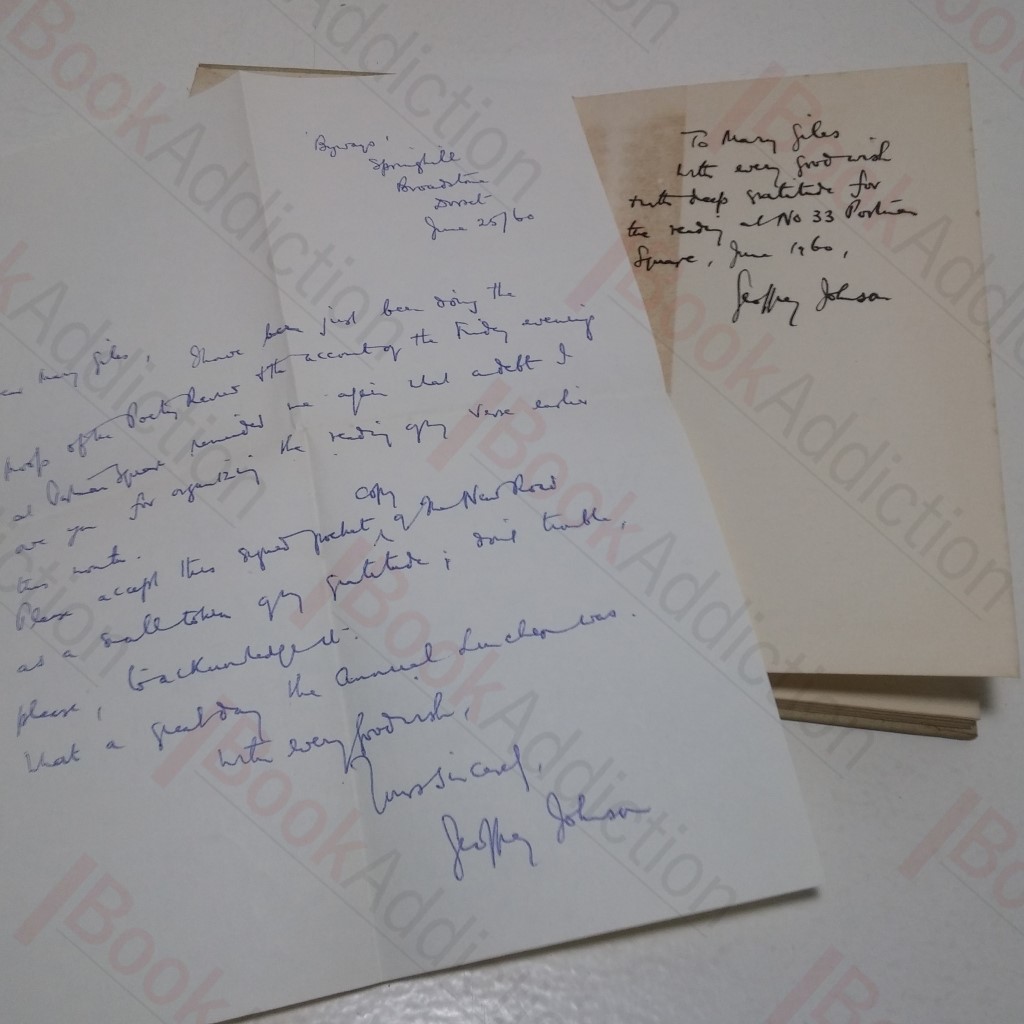 'Byways',
Springhill
Broadstone
Dorset
June 25/60
Mary Giles, I have been just been doing the
of the Poetry Review & the account of the Friday evening
at Portman Square reminded me again what a debt I
owe you for organizing the reading of my verse earlier
this month.
copy
Please accept this signed pocket ^ of The New Road
as a small token of my gratitude; don't trouble,
please, to acknowledge it.
What a great day the Annual Luncheon was.
With every good wish,
Yours sincerely,
Geoffrey Johnson
To Mary Giles
with every good wish
with deep gratitude for
the reading at No 33 Portman
Square, June 1960,
Geoffrey Johnson
BookAddiction